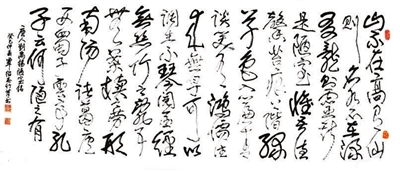 山不在高有仙
则名水不在深
有龙则灵斯
是陋室惟吾德
馨苔痕上阶绿
草色入帘青
谈笑有鸿儒往
来无白丁可以
调素琴阅金经
無丝竹之乱耳
無案牍之劳形
南阳诸葛庐
西蜀子云亭孔
子云何陋之有
唐人刘禹锡陋室铭